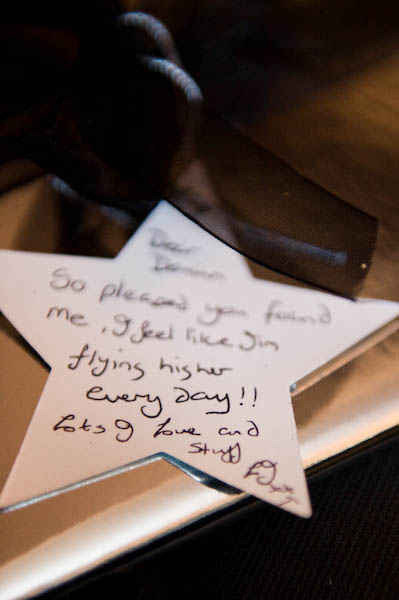 Dear
So pleased you found
me, I feel like I'm
flying higher
every day!!
Lots of love and
stuff